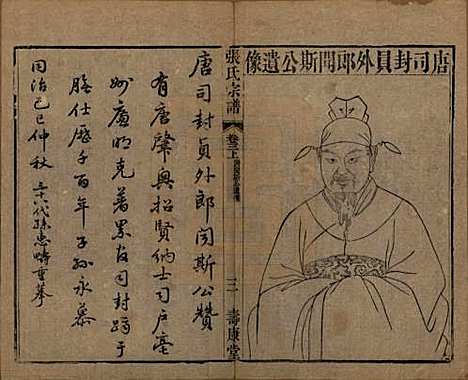 唐司封員外郎閏斯公遺像
張氏宗譜
卷三上
三
壽康堂
唐司封員外郎閏斯公贊
有唐肇興招賢納士司戶亳
州廉明克著累官司封躋于
膴仕歷千百年子孫永慕
同治己巳仲秋
三十八代孫忠疇重摹